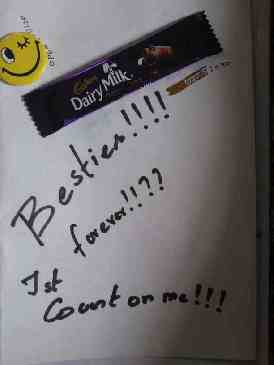 Cadbury
Dairy Milk
Bestiees!!!!
forever!!??
Jst
Count on me!!!